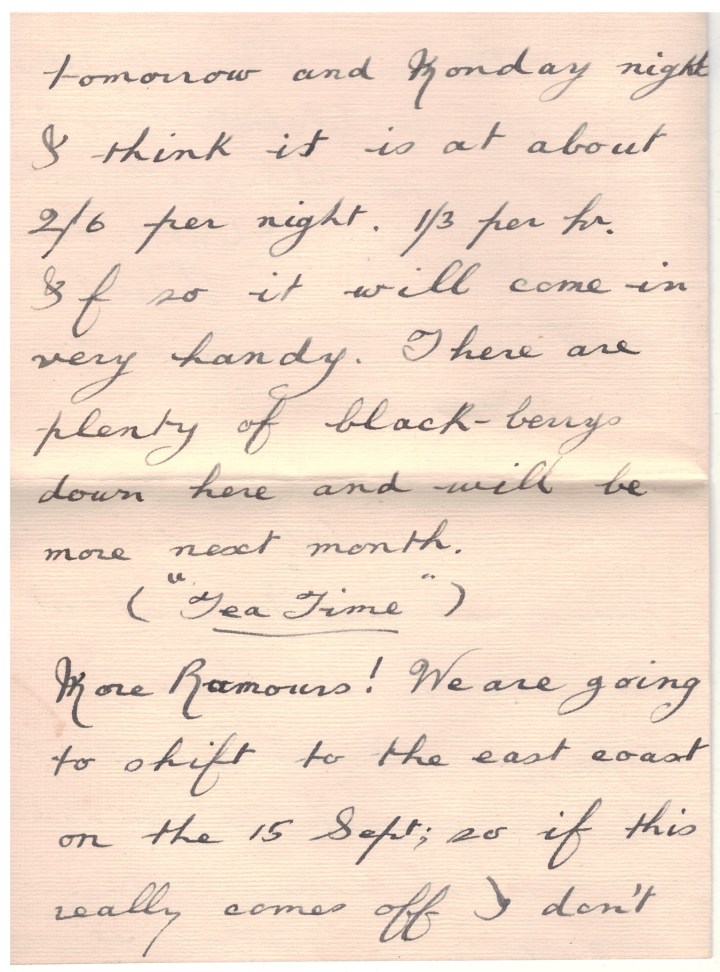 tomorrow and Monday night
I think it is at about
2/6 per night. 1/3 per hr.
If so it will come in
very handy. There are
plenty of black-berrys
down here and will be
more next month.
("Tea Time")
More Rumours! We are going
to shift to the east coast
on the 15 Sept; so if this
really comes off I don't